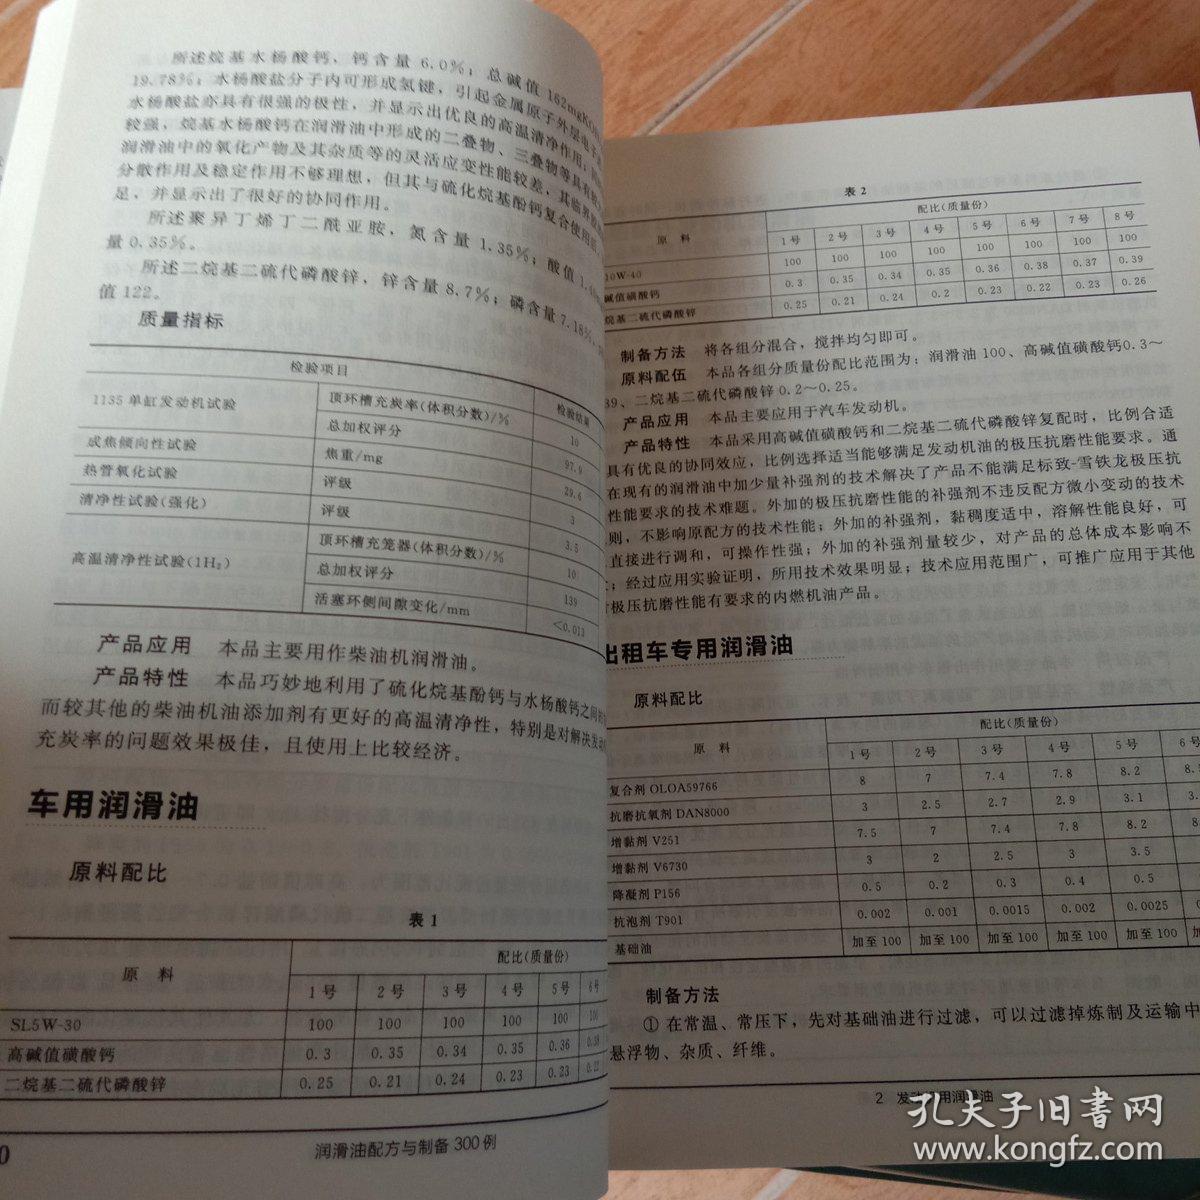 所述烷基水杨酸钙，钙含量 6.0%；总碱值 162mgKO
19.78%；水杨酸盐分子内可形成氢键，引起金属原子外层电子
水杨酸盐亦具有很强的极性，并显示出优良的高温清净作用；
较强，烷基水杨酸钙在润滑油中形成的二叠物、三叠物等具有较
润滑油中的氧化产物及其杂质等的灵活应变性能较差，其临界
分散作用及稳定作用不够理想，但其与硫化烷基酚钙复合使用
足，并显示出了很好的协同作用。
所述聚异丁烯丁二酰亚胺，氮含量 1.35%；酸值 1.4
量 0.35%。
所述二烷基二硫代磷酸锌，锌含量 8.7%；磷含量 7.18%，
值 122。
质量指标
检验项目 检验结果
1135 单缸发动机试验 顶环槽充炭率(体积分数)/% 10
总加权评分 97.9
成焦倾向性试验 焦重/mg 29.6
热管氧化试验 评级 3
清净性试验(强化) 评级 3.5
高温清净性试验(1H₂) 顶环槽充笼器(体积分数)/% 10
总加权评分 139
活塞环侧间隙变化/mm <0.013
产品应用 本品主要用作柴油机润滑油。
产品特性 本品巧妙地利用了硫化烷基酚钙与水杨酸钙之间
而较其他的柴油机油添加剂有更好的高温清净性，特别是对解决发动
充炭率的问题效果极佳，且使用上比较经济。
车用润滑油
原料配比
表 1
原 料 配比(质量份)
1 号 2 号 3 号 4 号 5 号 6 号
SL5W-30 100 100 100 100 100 100
高碱值磺酸钙 0.3 0.35 0.34 0.35 0.36 0.38
二烷基二硫代磷酸锌 0.25 0.21 0.24 0.23 0.23 0.22
0 润滑油配方与制备 300 例
表 2
原 料 配比(质量份)
1 号 2 号 3 号 4 号 5 号 6 号 7 号 8 号
10W-40 100 100 100 100 100 100 100 100
碱值磺酸钙 0.3 0.35 0.34 0.35 0.36 0.38 0.37 0.39
烷基二硫代磷酸锌 0.25 0.21 0.24 0.2 0.23 0.22 0.23 0.26
制备方法 将各组分混合，搅拌均匀即可。
原料配伍 本品各组分质量份配比范围为：润滑油 100、高碱值磺酸钙0.3～
39、二烷基二硫代磷酸锌 0.2～0.25。
产品应用 本品主要应用于汽车发动机。
产品特性 本品采用高碱值磺酸钙和二烷基二硫代磷酸锌复配时，比例合适
具有优良的协同效应，比例选择适当能够满足发动机油的极压抗磨性能要求。通
在现有的润滑油中加少量补强剂的技术解决了产品不能满足标致-雪铁龙极压抗
性能要求的技术难题。外加的极压抗磨性能的补强剂不违反配方微小变动的技术
则，不影响原配方的技术性能；外加的补强剂，黏稠度适中，溶解性能良好，可
直接进行调和，可操作性强；外加的补强剂量较少，对产品的总体成本影响不
；经过应用实验证明，所用技术效果明显；技术应用范围广，可推广应用于其他
对极压抗磨性能有要求的内燃机油产品。
出租车专用润滑油
原料配比
原 料 配比(质量份)
1 号 2 号 3 号 4 号 5 号 6 号
复合剂 OLOA59766 8 7 7.4 7.8 8.2 8.
抗磨抗氧剂 DAN8000 3 2.5 2.7 2.9 3.1 3.
增黏剂 V251 7.5 7 7.4 7.8 8.2 8.
增黏剂 V6730 3 2 2.5 3 3.5
降凝剂 P156 0.5 0.2 0.3 0.4 0.5
抗泡剂 T901 0.002 0.001 0.0015 0.002 0.0025 0.
基础油 加至 100 加至 100 加至 100 加至 100 加至 100 加
制备方法
① 在常温、常压下，先对基础油进行过滤，可以过滤掉炼制及运输中
悬浮物、杂质、纤维。
2 发动机用润滑油
孔夫子旧书网
www.kongfz.com